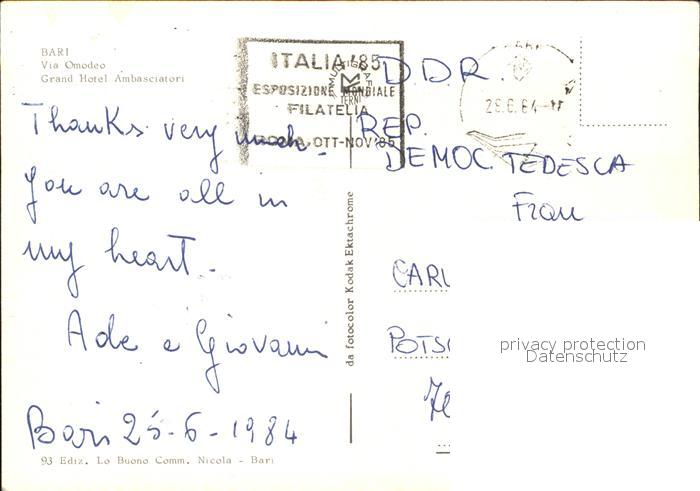 BARI
Via Omodeo
Grand Hotel Ambasciatori
Thanks very much.
You are all in
my heart.
Ade e Giovanni
Bari 25-6-1984
93 Ediz. Lo Buono Comm. Nicola - Bari
da fotocolor Kodak Ektachrome
ITALIA '85
ESPOSIZIONE MONDIALE
FILATELIA
ROMA, OTT-NOV '85
D.D.R.
REP.
DEMOC. TEDESCA
Frau
CARL
POTS
privacy protection
Datenschutz